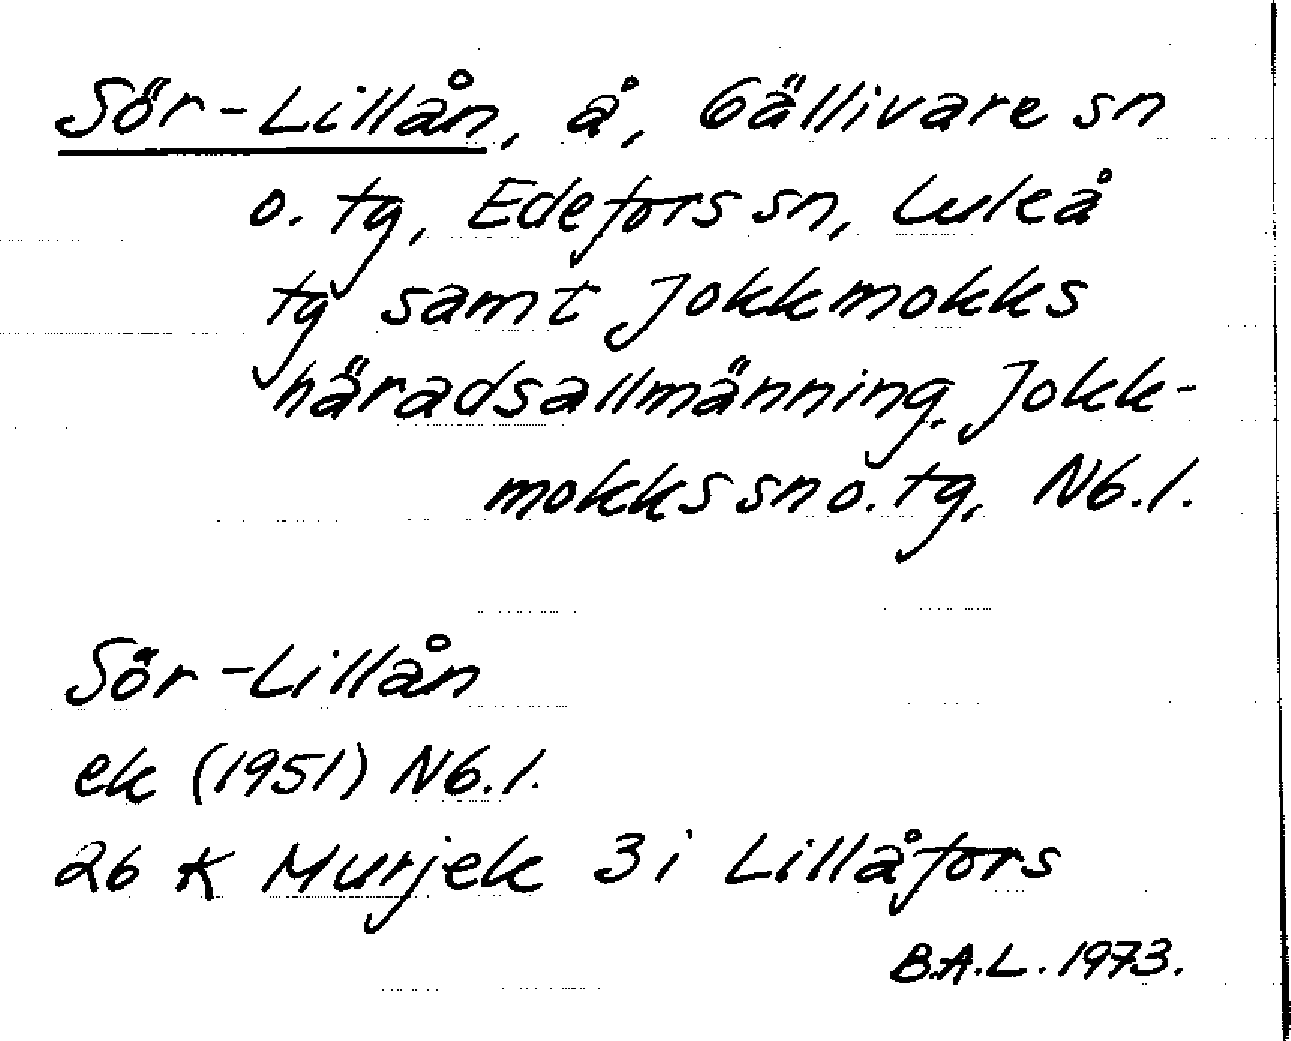 Sör-Lillån, å, Gällivare sn
o. tg, Edefors sn, Luleå
tg samt Jokkmokks
häradsallmänning, Jokk-
mokks sn o. tg, Nb.l.
Sör-Lillån
ek (1951) Nb.l.
26 K Murjek 3i Lillåfors
B.A.L. 1973.